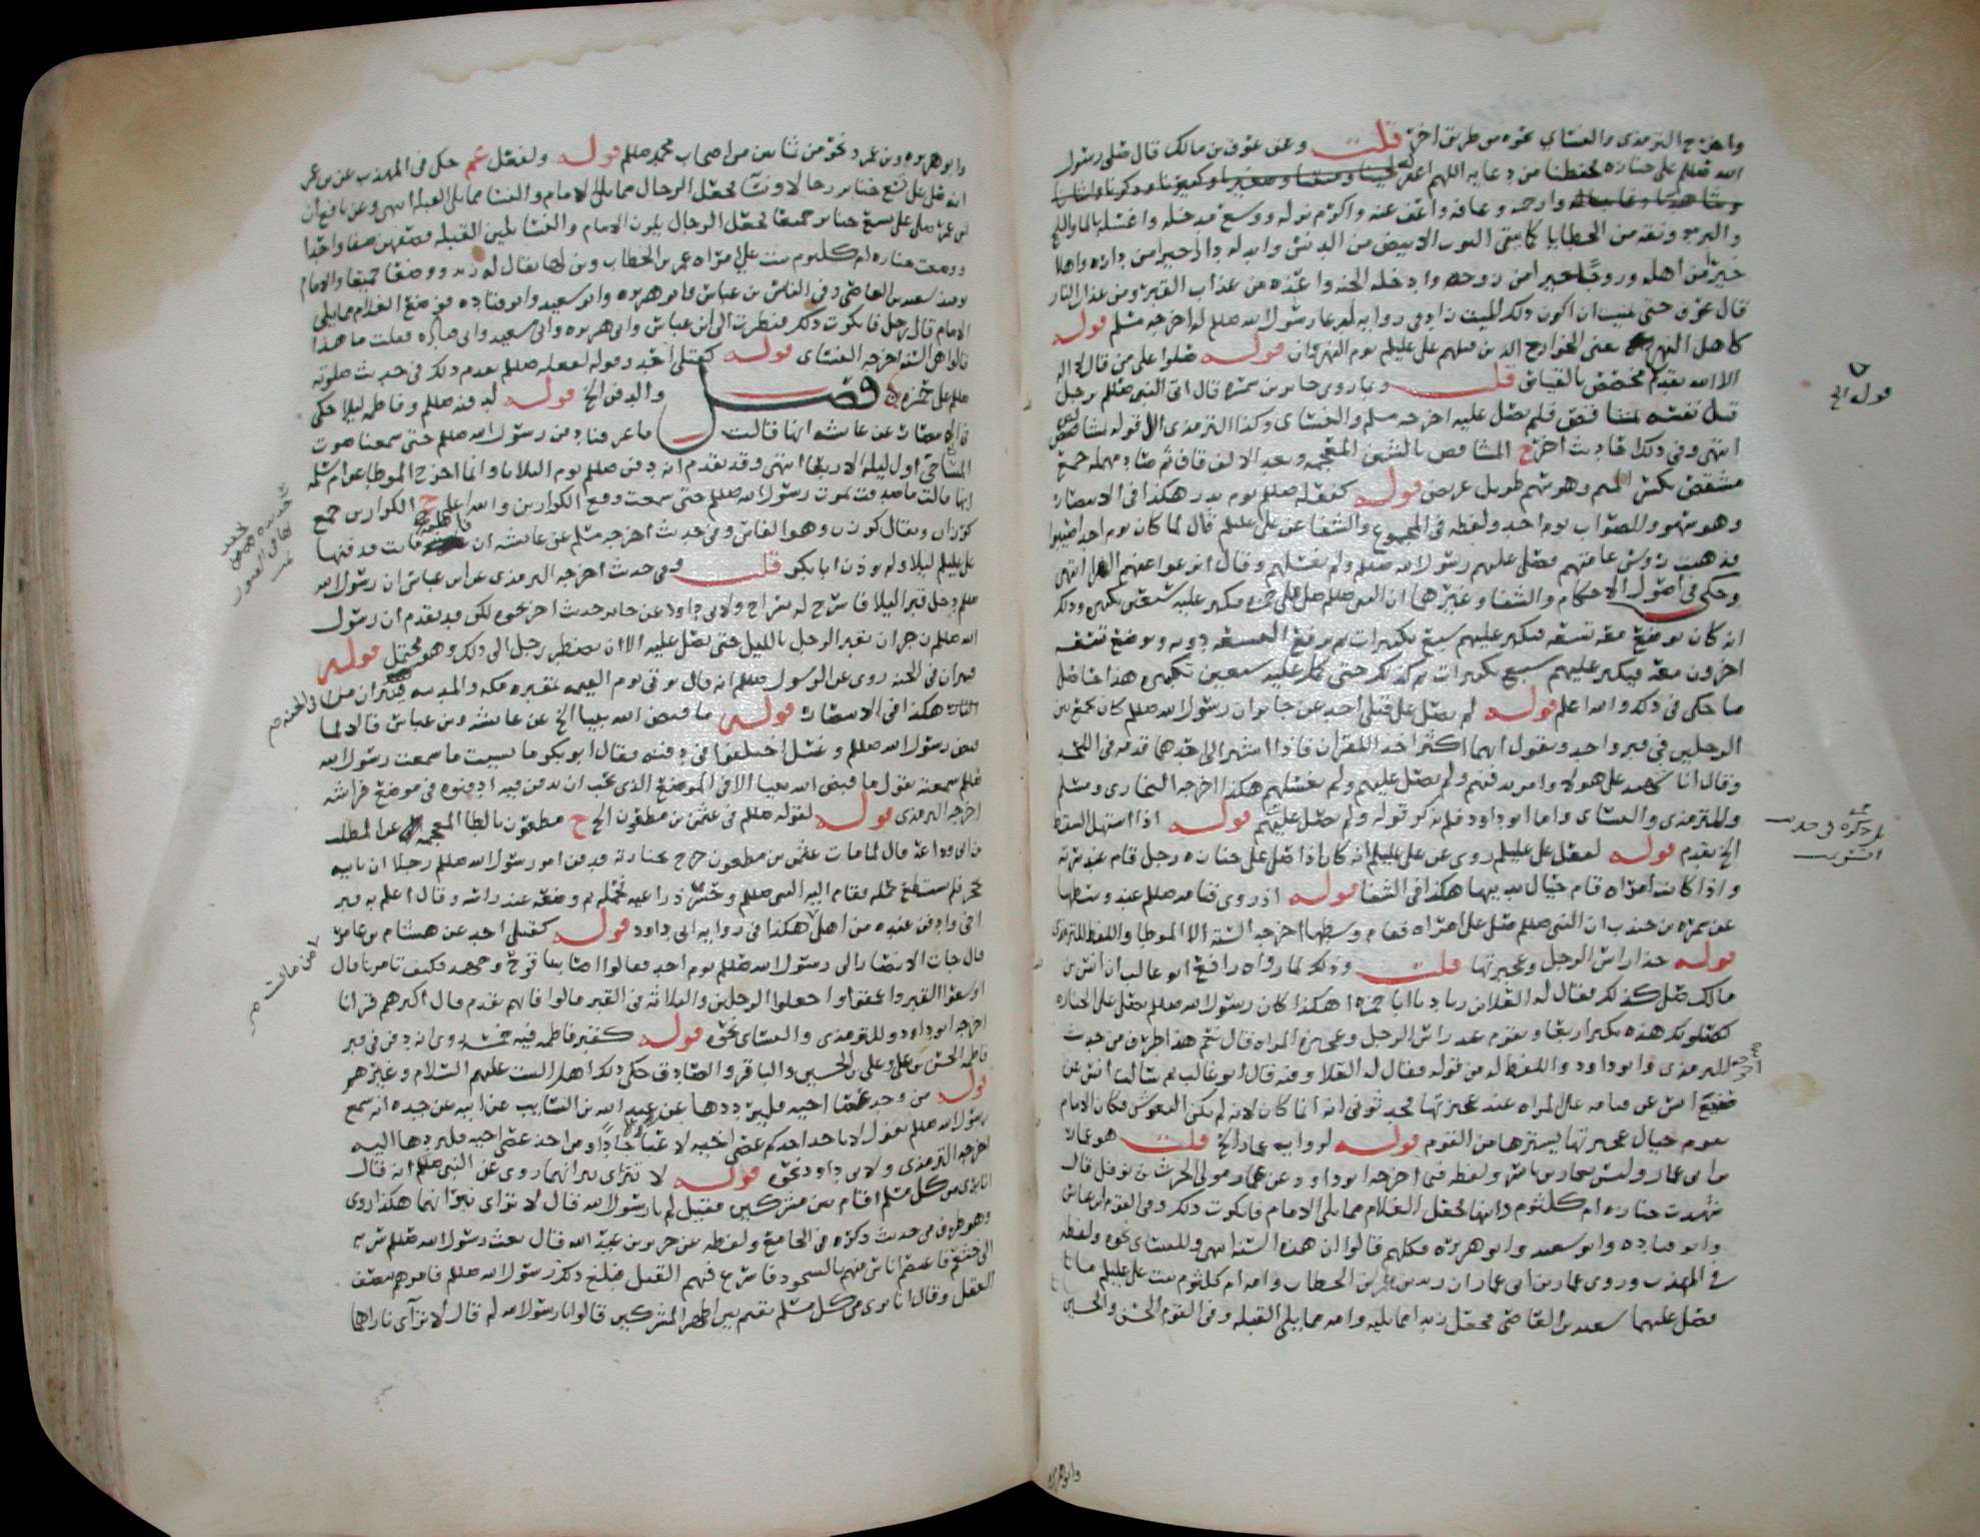 واخرج الترمذي والنسائي نحوه من طريق اخرى قلت وعن عوف بن مالك قال صلى رسول
الله صللم على جنازه فحفظنا من دعايه اللهم اغفر له
وارحمه وعافه واعف عنه واكرم نزله ووسع مدخله واغسله بالما والثلج
والبرد ونقه من الخطايا كما ينقى الثوب الابيض من الدنس وابدله دارا خيرا من داره واهلا
خيرا من اهله وزوجا خيرا من زوجه وادخله الجنه واعذه من عذاب القبر ومن عذاب النار
قال عوف حتى تمنيت ان اكون ذلك الميت زاد في روايه لدعا رسول الله صللم له اخرجه مسلم قوله
كاهل النهر يعني الخوارج الذين قتلهم علي عليلم يوم النهروان قوله صلوا على من قال لا اله
الا الله يقدم مخصص بالقياس قلت وبما روى جابر بن سمره قال اتى النبي صللم برجل
قتل نفسه بمشاقص فلم يصل عليه اخرجه مسلم والنسائي وكذا الترمذي الا قوله بمشاقص
انتهى وفي ذلك احاديث اخر ح المشاقص بالشين المعجمه وبعد الالف قاف ثم صاد مهمله جمع
مشقص بكسر الميم وهو سهم طويل عريض قوله كفعله صللم يوم بدر هكذا في الانتصار
وهو سهو والصواب يوم احد ولفظه في المجموع والشفا عن علي عليلم قال لما كان يوم احد اصيبوا
فذهبت رؤوس عامتهم فصلى عليهم رسول الله صللم ولم يغسلهم وقال انزعوا عنهم الفرا انتهى
وحكى في اصول الاحكام والشفا وغيرهما ان النبي صللم صلى على حمزه فكبر عليه سبعين تكبيره وذلك
انه كان يوضع معه تسعه فيكبر عليهم سبع تكبيرات ثم يرفع التسعه دونه ويوضع تسعه
اخرون معه فيكبر عليهم سبع تكبيرات ثم كذلك حتى كبر عليه سبعين تكبيره هذا حاصل
ما حكي في ذلك والله اعلم قوله لم يصل على قتلى احد عن جابر ان رسول الله صللم كان يجمع بين
الرجلين في قبر واحد ويقول ايهما اكثر اخذ للقرآن فاذا اشير الى احدهما قدمه في اللحد
وقال انا شهيد على هولا وامر بدفنهم ولم يصل عليهم ولم يغسلهم هكذا اخرجه البخاري ومسلم
وللترمذي والنسائي واما ابو داود فلم يذكر قوله ولم يصل عليهم قوله اذا استهل السقط
الخ يقدم قوله لفعل علي عليلم روى عن علي عليلم انه كان اذا صلى على جنازه رجل قام عند سرته
واذا كانت امراه قام حيال ثدييها هكذا في الشفا قوله اذ روى قيامه صللم عند وسطها
عن سمره بن جندب ان النبي صللم صلى على امراه فقام وسطها اخرجه السته الا الموطا واللفظ للترمذي
قوله حذا راس الرجل وعجيزتها قلت وذلك لما رواه رافع ابو غالب ان انس بن
مالك صلى كذلك فقال له العلا بن زياد يا ابا حمزه اهكذا كان رسول الله صللم يصلي على الجنازه
كصلوتك هذه يكبر اربعا ويقوم عند راس الرجل وعجيزه المراه قال نعم هذا طرف من حديث
للترمذي وابو داود واللفظ له من قوله فقال له العلا وفيه قال ابو غالب ثم سالت انس عن
صنيع انس عن قيامه على المراه عند عجيزتها فحدثوني انه انما كان لانه لم تكن النعوش فكان الامام
يقوم حيال عجيزتها يسترها من القوم قوله لروايه عمار الخ قلت هو عمار
بن ابي عمار وليس بعمار بن ياسر ولفظه فيما اخرجه ابو داود عن عمار مولى الحرث بن نوفل قال
شهدت جنازه ام كلثوم وابنها فجعل الغلام مما يلي الامام فانكرت ذلك وفي القوم ابن عباس
وابو قتاده وابو سعيد وابو هريره فكلهم قالوا ان هذه السنه انتهى وللنسائي نحوه ولفظه
في المهذب وروى عمار بن ابي عمار ان زيد بن عمر بن الخطاب وامه ام كلثوم بنت علي عليلم ماتا
فصلى عليهما سعيد بن العاص فجعل زيدا مما يليه وامه مما يلي القبله وفي القوم الحسن والحسين
وابو هريره
قوله الخ
وابو هريره وبن عمر ونحو من ثمانين من اصحاب محمد صللم قوله ولفعل عمر حكى في المهذب عن بن عمر
انه صلى على تسع جنايز رجالا ونسآ فجعل الرجال مما يلي الامام والنسا مما يلي القبله انتهى وعن نافع ان
ابن عمر صلى على تسع جنايز جميعا فجعل الرجال يلون الامام والنسا يلين القبله فصفهن صفا واحدا
ووضعت جنازه ام كلثوم بنت علي امراه عمر بن الخطاب وبن لها يقال له زيد ووضعا جميعا والامام
يوميذ سعيد بن العاص وفي الناس بن عباس وابو هريره وابو سعيد وابو قتاده فوضع الغلام مما يلي
الامام قال رجل فانكرت ذلك فنظرت الى ابن عباس وابي هريره وابي سعيد وابي قتاده فقلت ما هذا
قالوا هي السنه اخرجه النسائي قوله كقتلى احد وقوله لفعله صللم يقدم ذلك في حديث صلوته
صللم على حمزه فصل والدفن الخ قوله لدفنه صللم وفاطمه ليلا حكى
في الانتصار عن عايشه انها قالت ما عرفنا دفن رسول الله صللم حتى سمعنا صوت
المساحي اول ليله الاربعا انتهى وقد تقدم انه دفن صللم يوم الثلاثا وانما اخرج الموطا عن ام سلمه
انها قالت ما صدقت بموت رسول الله صللم حتى سمعت وقع الكرازين والله اعلم ح الكرازين جمع
كرزان ويقال كرزن وهو الفاس وفي حديث اخرجه مسلم عن عايشه ان فاطمه ماتت فدفنها
علي عليلم ليلا ولم يوذن ابا بكر قلت وفي حديث اخرجه الترمذي عن ابن عباس ان رسول الله
صللم دخل قبرا ليلا فاسرج له سراج ولابي داود عن جابر حديث اخر نحوه لكن قد تقدم ان رسول
الله صللم زجر ان يقبر الرجل بالليل حتى يصلى عليه الا ان يضطر رجل الى ذلك وهو محتمل قوله
قبران في الجنه روي عن الرسول صللم انه قال يوتى يوم القيمه بمقبره مكه والمدينه
هكذا في الانتصار قوله ما قبض الله نبيا الخ عن عايشه وبن عباس قالا لما
قبض رسول الله صللم وغسل اختلفوا في دفنه فقال ابو بكر ما نسيت ما سمعت رسول الله
صللم سمعته يقول ما قبض الله نبيا الا في الموضع الذي يحب ان يدفن فيه ادفنوه في موضع فراشه
اخرجه الترمذي قوله لقوله صللم في عثمن بن مظعون الخ ح مظعون بالظا المعجمه عن المطلب
بن ابي وداعه قال لما مات عثمن بن مظعون خرج بجنازته فدفن امر رسول الله صللم رجلا ان ياتيه
بحجر فلم يستطع حمله فقام اليه النبي صللم وحسر ذراعيه فحمله ثم وضعه عند راسه وقال اعلم به قبر
اخي وادفن عنده من اهلي هكذا في روايه ابي داود قوله كقتلى احد عن هشام بن عامر
قال جات الانصار الى رسول الله صللم يوم احد فقالوا اصابنا قرح وجهد فكيف تامرنا قال
اوسعوا القبر واعمقوا واجعلوا الرجلين والثلاثه في القبر قالوا فايهم يقدم قال اكثرهم قرانا
اخرجه ابو داود وللترمذي والنسائي نحوه قوله كقبر فاطمه فيه خمسه روي انه دفن في قبر
فاطمه الحسن بن علي وعلي بن الحسين والباقر والصادق حكى ذلك اهل البيت عليهم السلام وغيرهم
قوله من وجد عصا اخيه فليرددها عن عبد الله بن السايب عن ابيه عن جده انه سمع
رسول الله صللم يقول لا ياخذ احدكم عصى اخيه لاعبا جادا ومن اخذ عصى اخيه فليردها اليه
اخرجه الترمذي ولابي داود نحوه قوله لا تتراى نيرانهما روي عن النبي صللم انه قال
انا بري من كل مسلم اقام بين مشركين فقيل لم يا رسول الله قال لا تتراى نيرانهما هكذا روي
وهو طرف من حديث ذكره في الجامع ولفظه عن جرير بن عبد الله قال بعث رسول الله صللم سريه
الى خثعم فاعتصم اناس منهم بالسجود فاسرع فيهم القتل فبلغ ذلك رسول الله صللم فامر لهم بنصف
العقل وقال انا بري من كل مسلم يقيم بين اظهر المشركين قالوا يا رسول الله لم قال لا ترآى ناراهما